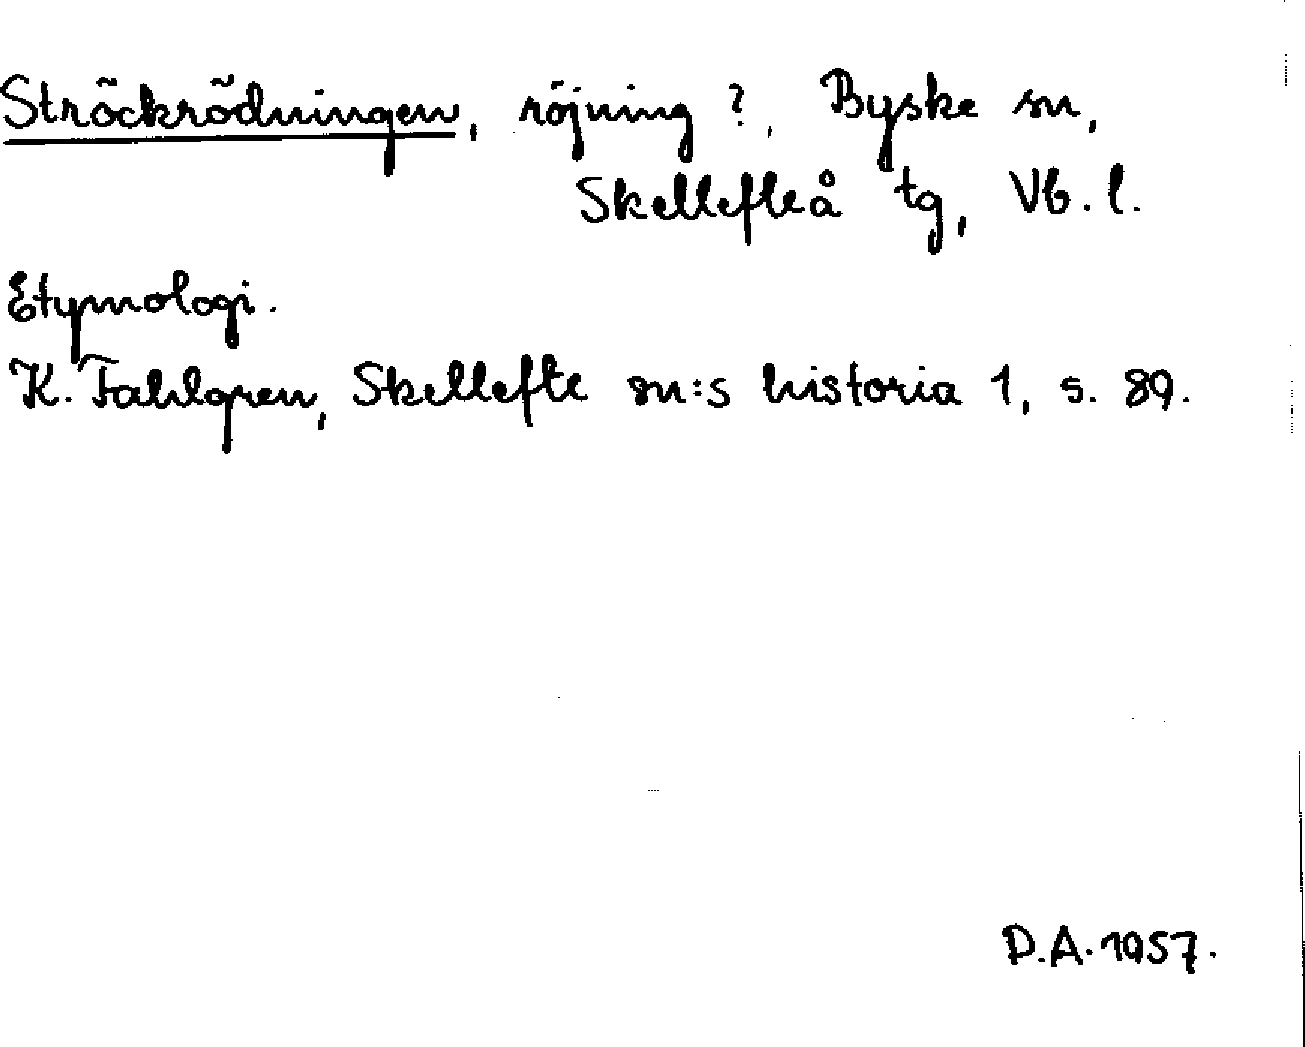 Ströckrödningen, röjning?, Byske sn,
Skellefteå tg, Vb. l.
Etymologi.
K. Fahlgren, Skellefte sn:s historia 1, s. 89.
D.A. 1957.